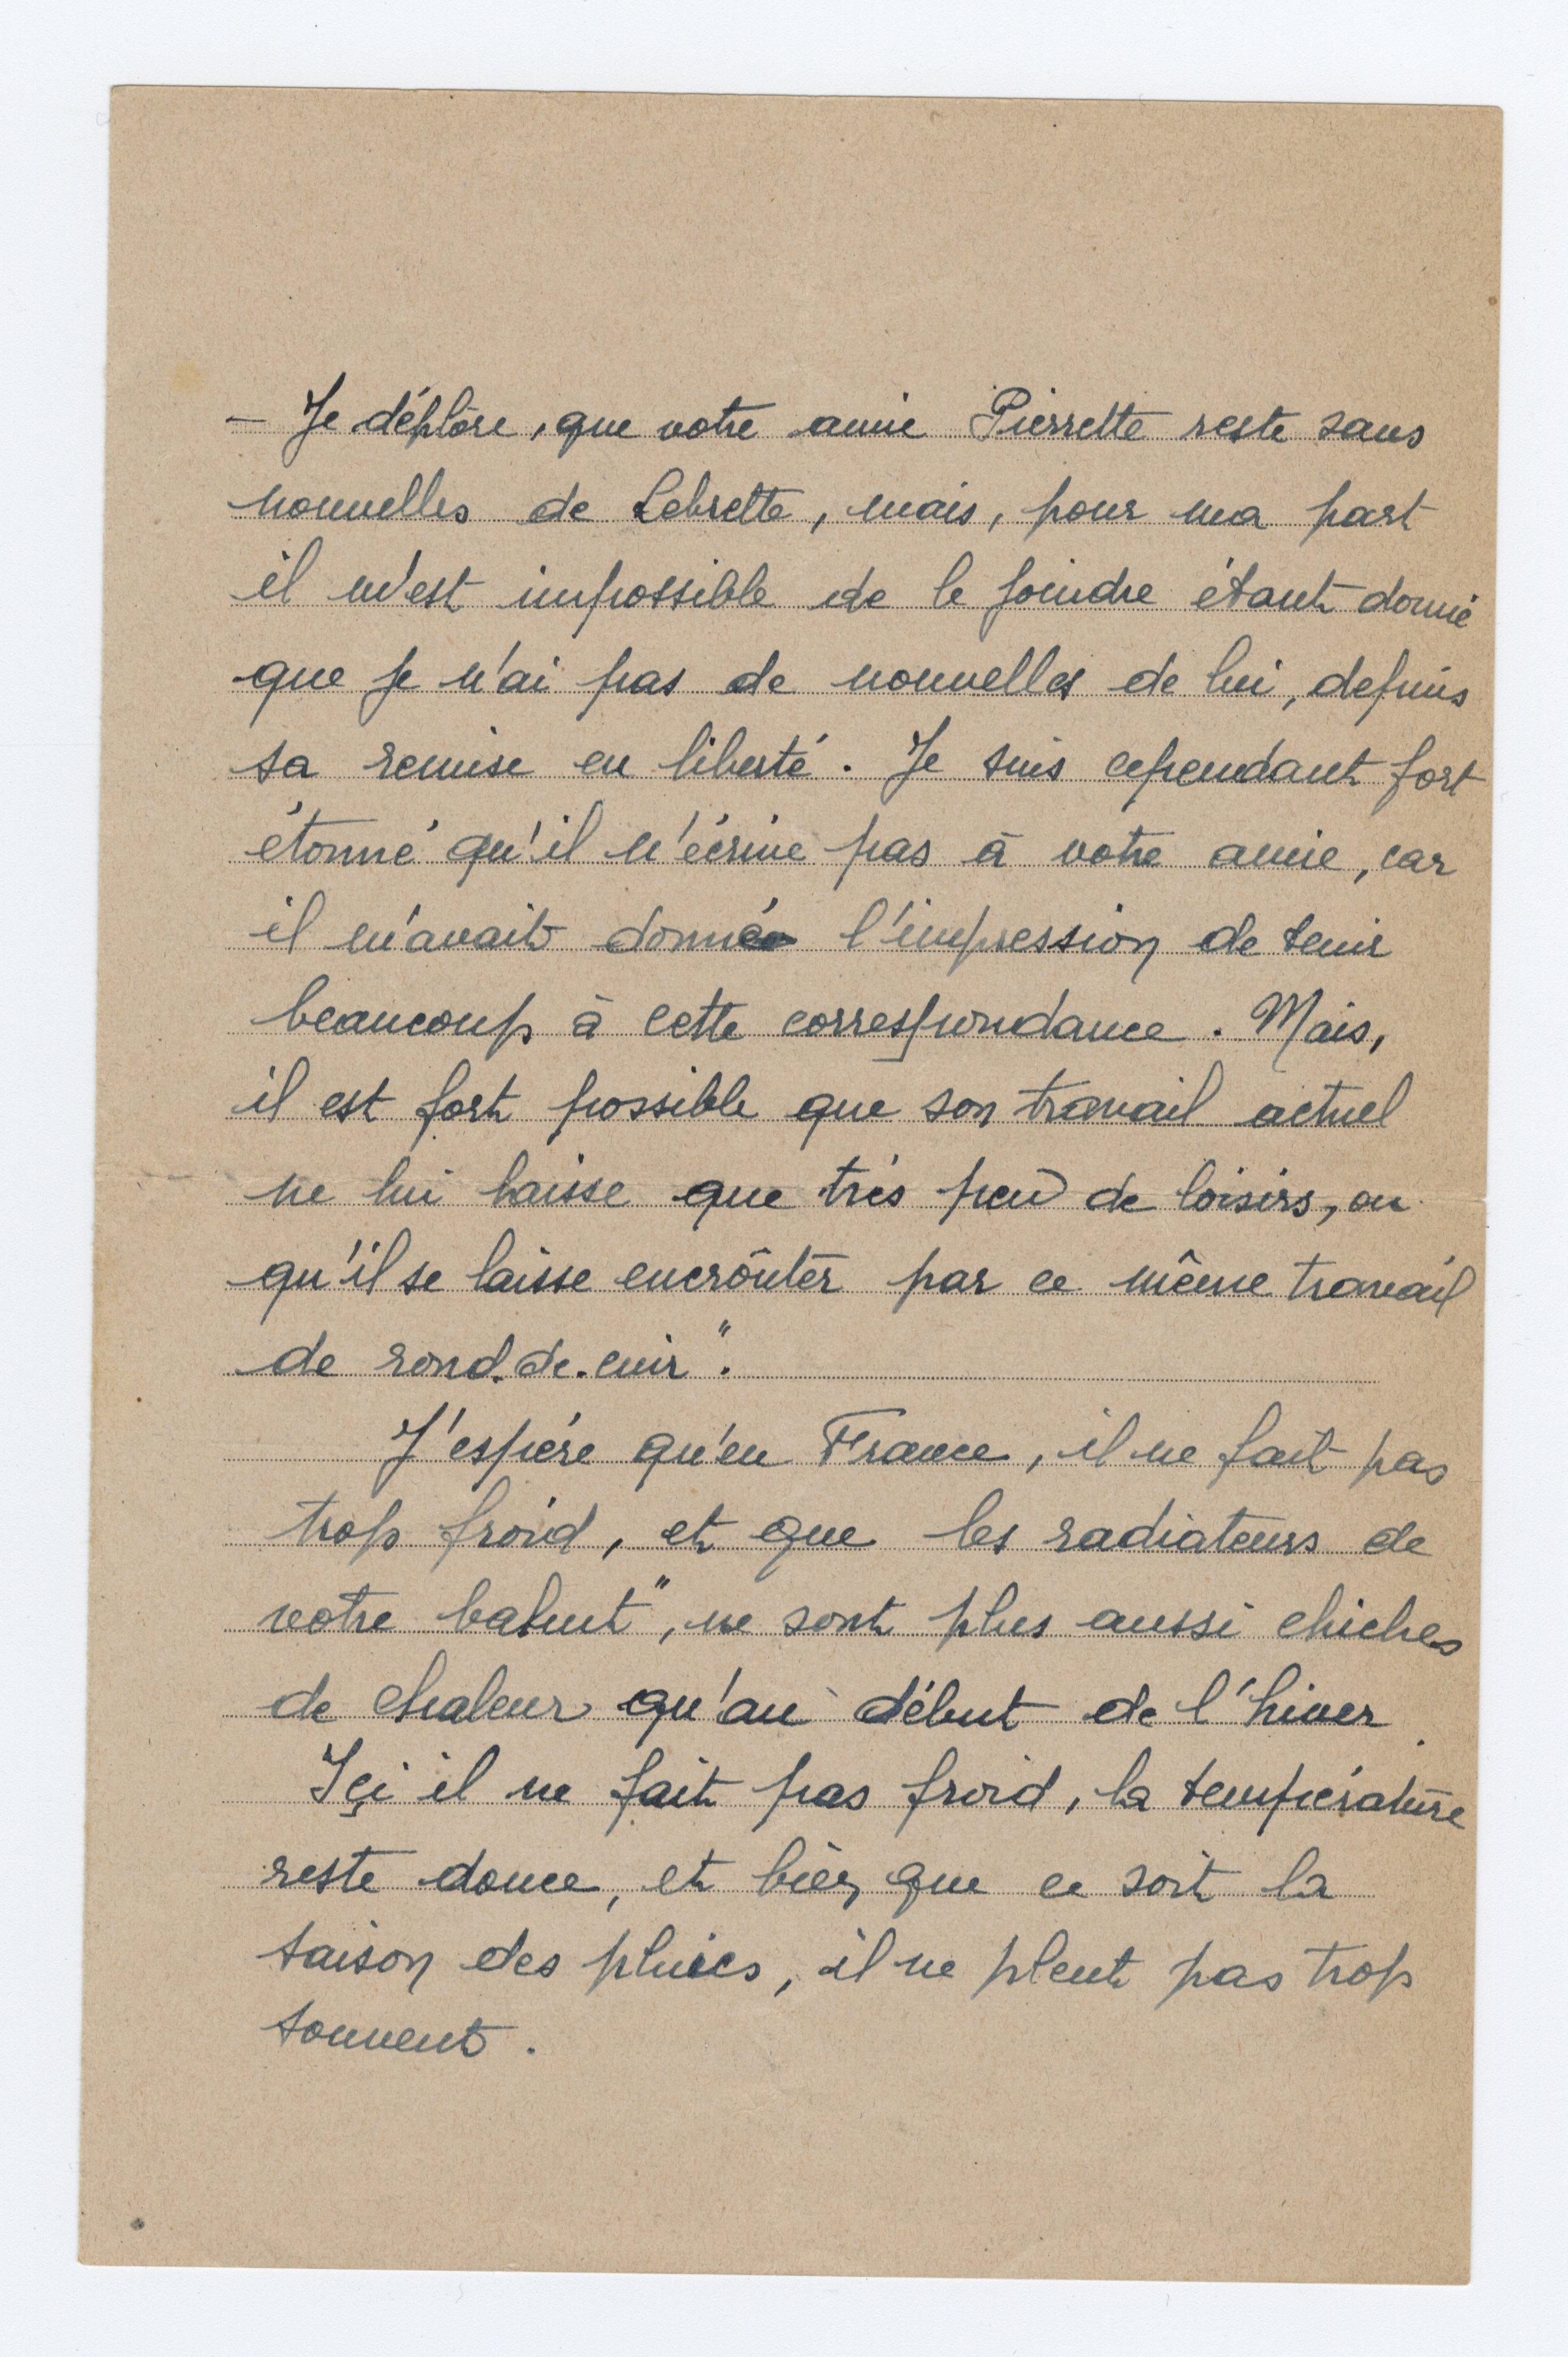 – Je déplore, que votre amie Pierrette reste sans
nouvelles de Lebrette, mais, pour ma part
il m'est impossible de le joindre étant donné
que je n'ai pas de nouvelles de lui, depuis
sa remise en liberté. Je suis cependant fort
étonné qu'il n'écrive pas à votre amie, car
il m'avait donné l'impression de tenir
beaucoup à cette correspondance. Mais,
il est fort possible que son travail actuel
ne lui laisse que très peu de loisirs, ou
qu'il se laisse encroûter par ce même travail
de rond.de.cuir".
J'espère qu'en France, il ne fait pas
trop froid, et que les radiateurs de
votre bahut", ne sont plus aussi chiches
de chaleur qu'au début de l'hiver.
Içi il ne fait pas froid, la température
reste douce, et bien que ce soit la
saison des pluies, il ne pleut pas trop
souvent.